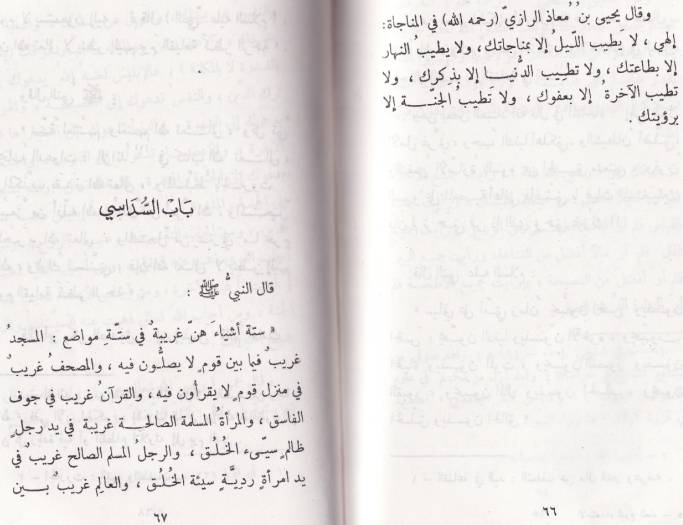 وقال يحيى بنُ مُعاذ الرازيّ (رحمه الله) في المناجاة:
إلهي ، لا يَطيب اللّيلُ إلا بمناجاتك، ولا يطيبُ النهار
إلا بطاعتك ، ولا تطـيب الدُّنيـا إلا بذكرك ، ولا
تطيب الآخرةُ إلا بعفوك ، ولا تَطيبُ الجنّـة إلا
برؤيتك .
٦٦
بَابُ السُّدَاسِي
قال النبيُّ ﷺ :
« ستة أشياءَ هنّ غريبةٌ في ستّةِ مواضع : المسجدُ
غريبٌ فيا بين قوم لا يصلُّون فيه ، والمصحفُ غريبٌ
في منزل قوم لا يقرأون فيه ، والقرآنُ غريب في جوف
الفاسق ، والمرأةُ المسلمة الصالحـة غريبة في يد رجلٍ
ظالمٍ سيّىء الخُلُق ، والرجل المسلم الصالح غريبٌ في
يد امرأةٍ رديـَّةٍ سيئة الخُلُق ، والعالِم غريبٌ بـين
٦٧